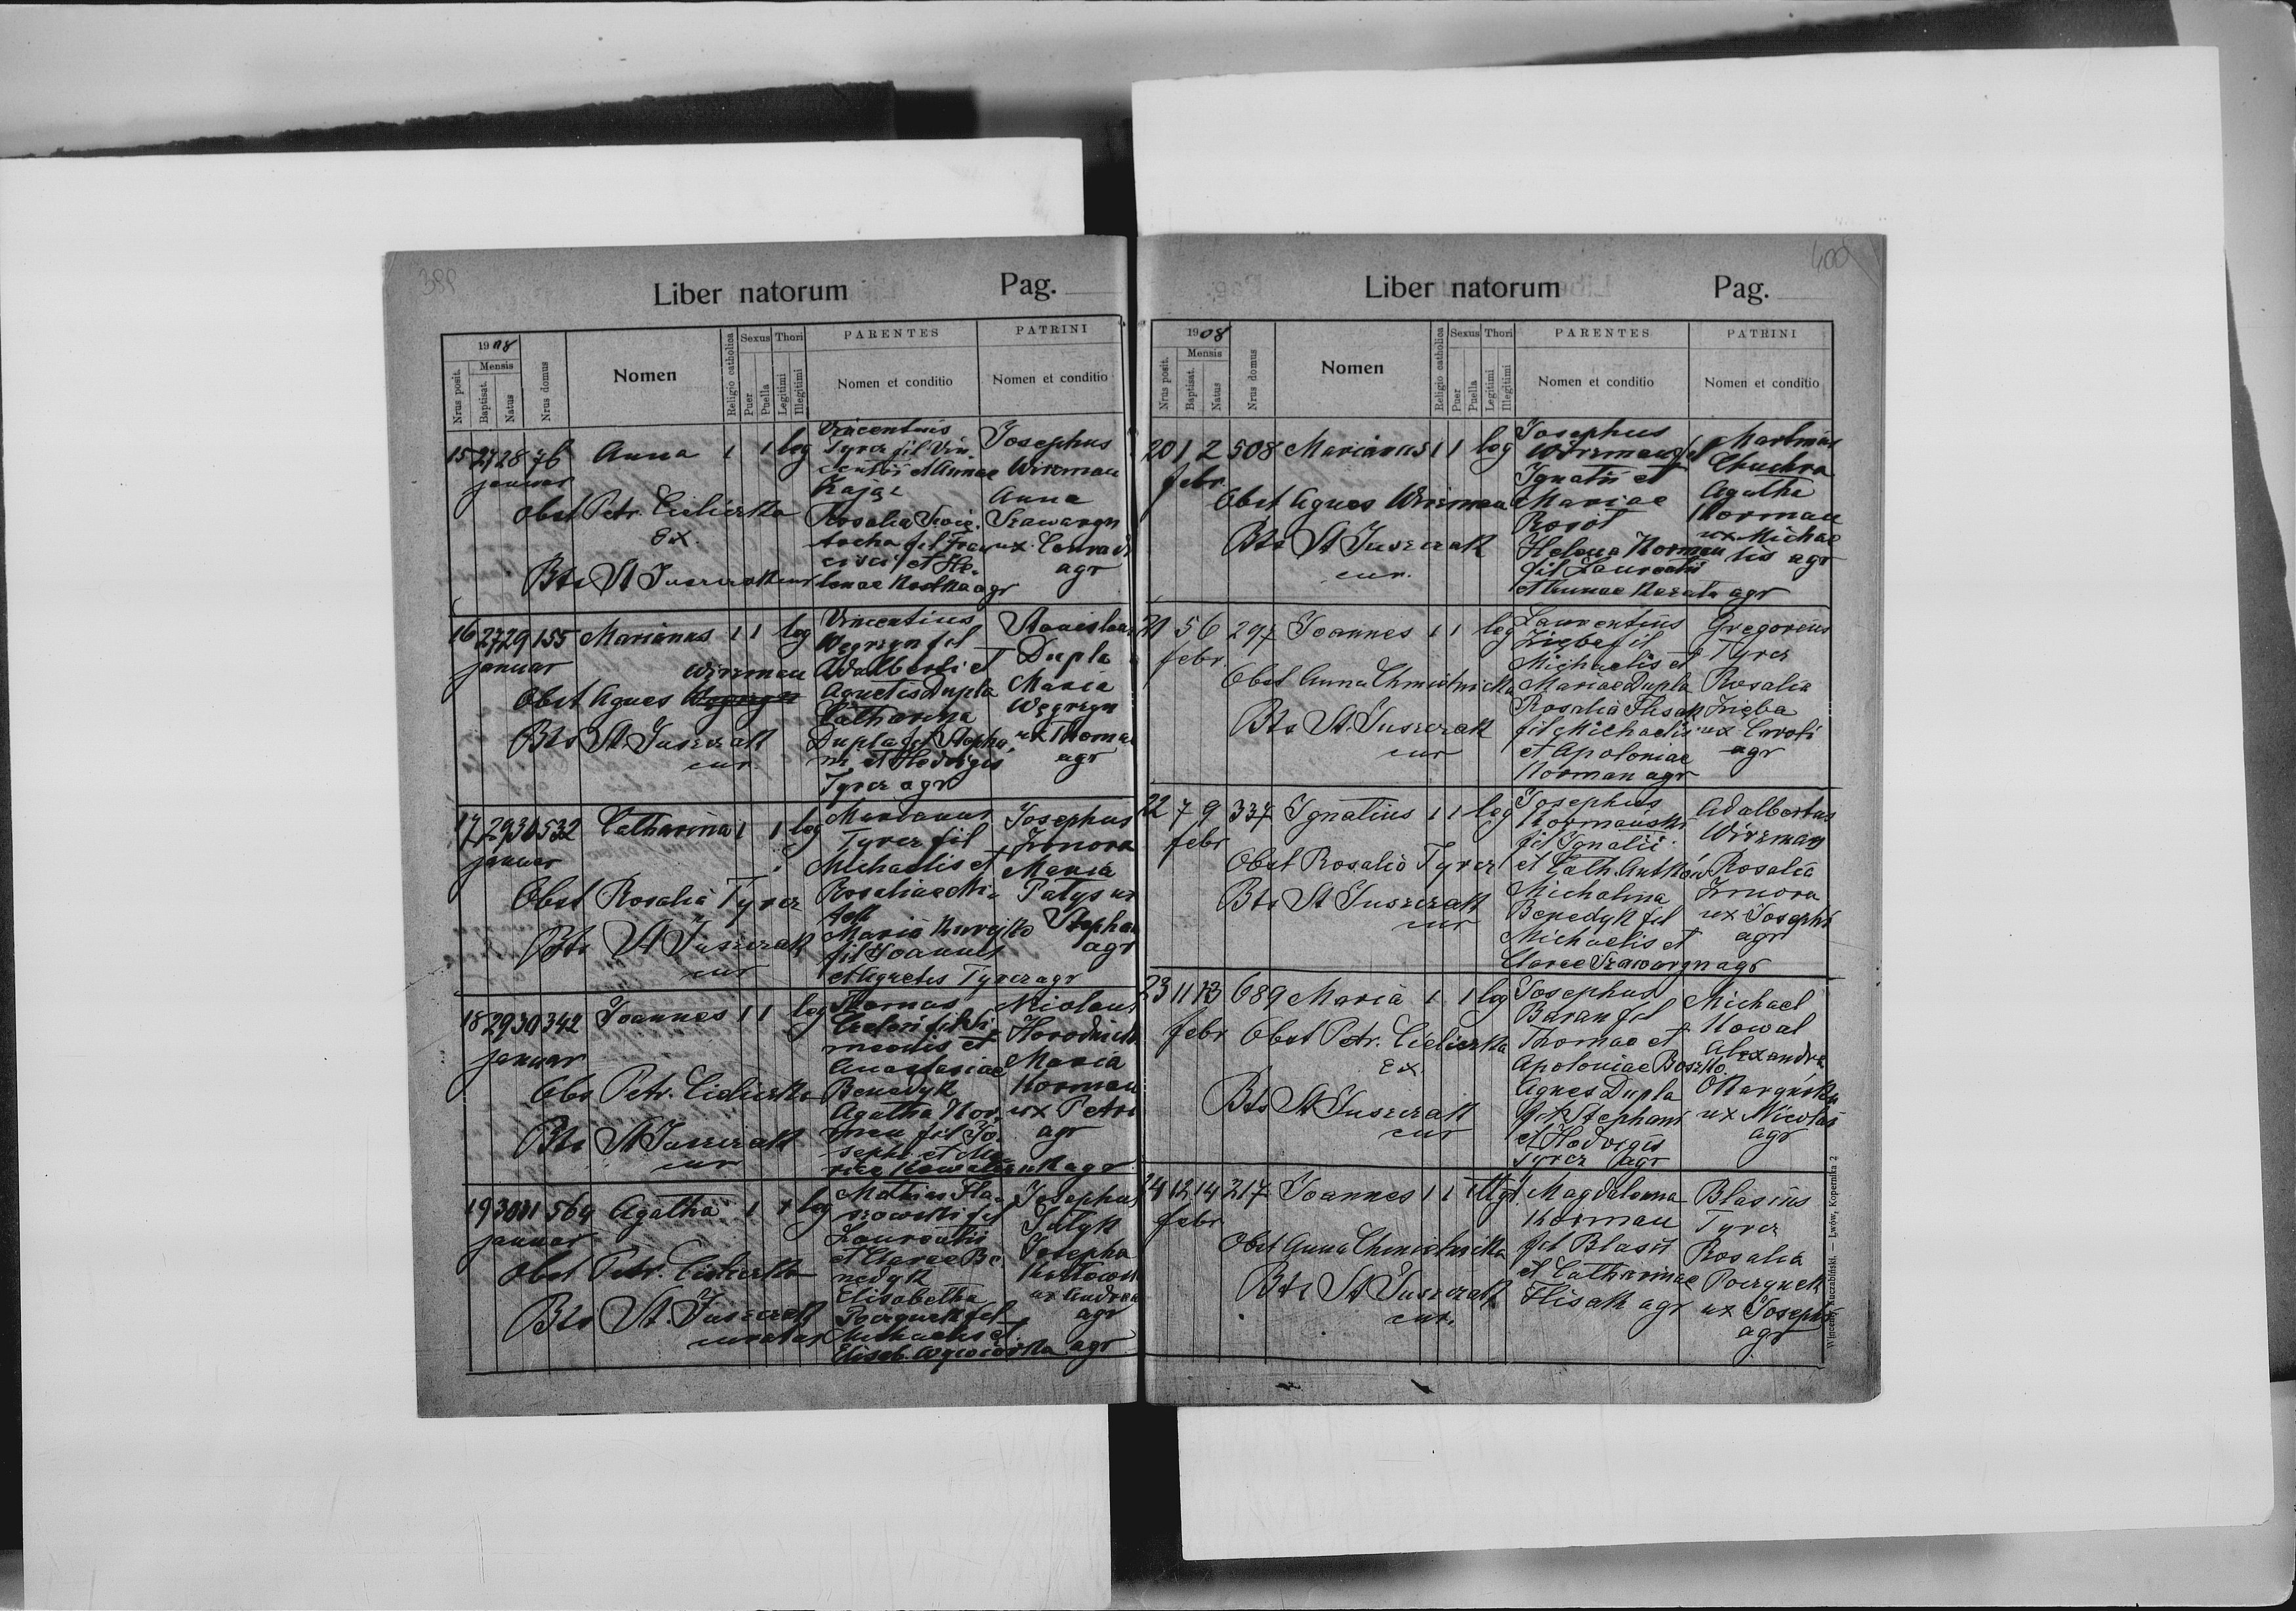 399
Liber natorum Pag.
1908
Nrus posit.
Mensis
Baptisat.
Natus
Nrus domus
Nomen
Religio catholica
Sexus
Puer
Puella
Thori
Legitimi
Illegitimi
PARENTES
Nomen et conditio
PATRINI
Nomen et conditio
15 27 28 76 Anna 1 1 leg
januar
Obst Petr. Cieliczka
Ex
Bts St Juszczak cur
Vincentius
Tyrcz fil Vin-
centii et Annae
Zając
Rosalia
fil Fran
cisci et He-
lenae Kostka agr
Josephus
Wirzman
Anna
Szawaryn
ux Conradi
agr
16 27 29 155 Marianus 1 1 leg
januar
Wirzman
Obst Agnes
Bts St. Juszczak
cur
Vincentius
Węgrzyn fil
Adalberti et
Agnetis Dupla
Catharina
Dupla fil Stepha-
ni et Hedvigis
Tyrcz agr
Stanislaus
Dupla
Maria
Węgrzyn
ux Thomae
agr
17 29 30 532 Catharina 1 1 leg
januar
Obst Rosalia Tyrcz
Bts St Juszczak
cur
Marianus
Tyrcz fil
Michaelis et
Rosaliae
Maria
fil Joannis
et Agnetis Tyrcz agr
Josephus
Zmora
Maria
Patys ux
Stephani
agr
18 29 30 342 Joannes 1 1 leg
januar
Obs Petr. Cieliczka
Bts St Juszczak
cur
Thomas
fil Si-
meonis et
Anastasiae
Benedyk
Agatha Kor-
man fil Jo-
sephi et Ma-
riae agr
Nicolaus
Maria
Korman
ux Petri
agr
19 30 31 569 Agatha 1 1 leg
januar
Obst Petr. Cieliczka
Bts St. Juszczak
curatus
Mathias Fla-
szowski fil
Laurentii
et Clarae Be
nedyk
Elisabetha
fil
Michaelis et
Elisab. agr
Josephus
Josepha
ux Andreae
agr
400
Liber natorum Pag.
1908
Nrus posit.
Mensis
Baptisat.
Natus
Nrus domus
Nomen
Religio catholica
Sexus
Puer
Puella
Thori
Legitimi
Illegitimi
PARENTES
Nomen et conditio
PATRINI
Nomen et conditio
20 1 2 508 Marianus 1 1 leg
febr
Obst Agnes Wirzman
Bts St Juszczak
cur.
Josephus
Wirzman fil
Ignatii et
Mariae
Helena Korman
fil Laurentii
et Annae agr
Martinus
Chuchra
Agatha
Korman
ux Michae
lis agr
21 5 6 297 Joannes 1 1 leg
febr
Obst Anna Chmielnicka
Bts St. Juszczak
cur
Laurentius
Zięba fil
Michaelis et
Mariae Dupla
Rosalia Flisak
fil Michaelis
et Apoloniae
Korman agr
Gregorius
Tyrcz
Rosalia
Zięba
ux Caroli
agr
22 7 9 337 Ignatius 1 1 leg
febr
Obst Rosalia Tyrcz
Bts St Juszczak
cur
Josephus
Kormański
fil Ignatii
et Cath. Antków
Michalina
Benedyk fil
Michaelis et
Clarae Szawaryn agr
Adalbertus
Wirzman
Rosalia
Zmora
ux Josephi
agr
23 11 13 689 Maria 1 1 leg
febr
Obst Petr. Cieliczka
Ex.
Bts St Juszczak
cur
Josephus
Baran fil
Thomae et
Apoloniae Boszko
Agnes Dupla
fil Stephani
et Hedvigis
Tyrcz agr
Michael
Kowal
Alexandra
ux Nicolai
agr
24 12 14 217 Joannes 1 1 illgt
febr
Obst Anna Chmielnicka
Bts St Juszczak
cur.
Magdalenna
Korman
fil Blasii
et Catharinae
Flisak agr
Blasius
Tyrcz
Rosalia
ux Josephi
agr
Wincenty Kuczabiński. — Lwów, Kopernika 2